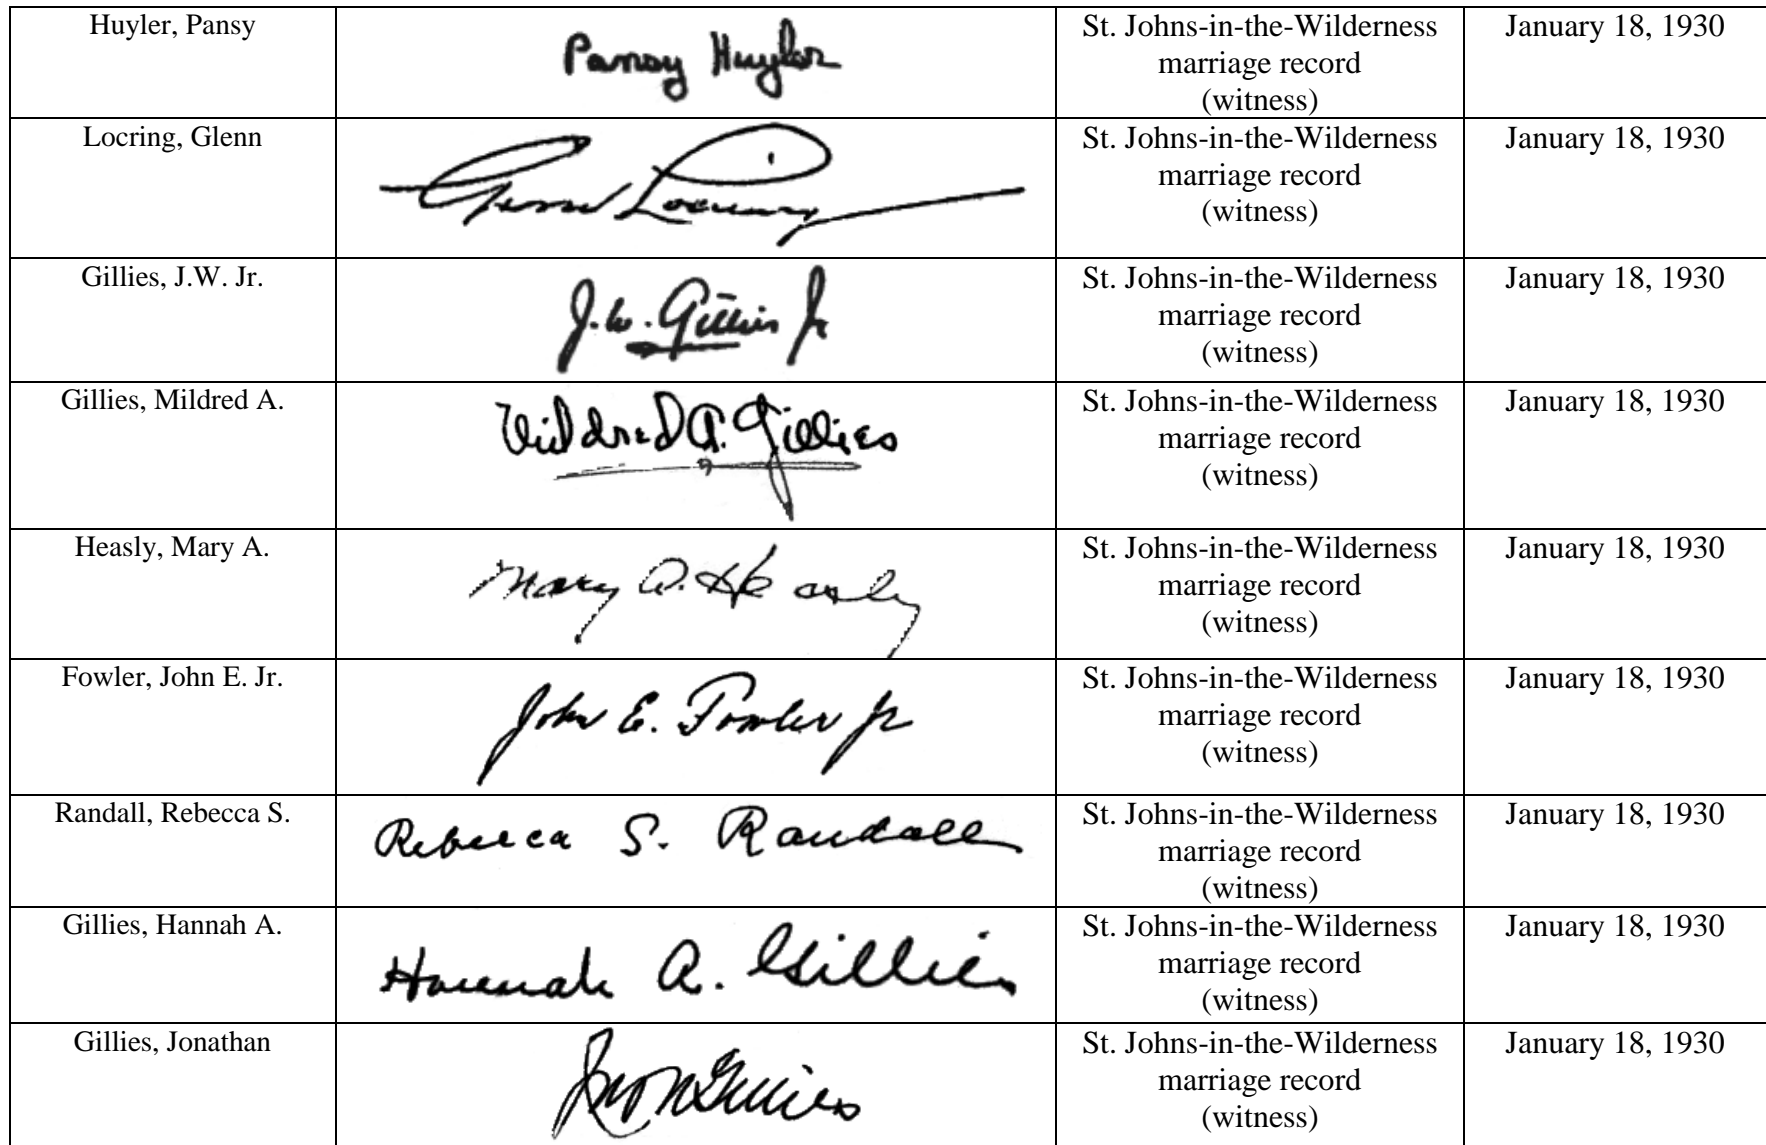 Huyler, Pansy
Pansy Huyler
St. Johns-in-the-Wilderness
marriage record
(witness)
January 18, 1930
Locring, Glenn
St. Johns-in-the-Wilderness
marriage record
(witness)
January 18, 1930
Gillies, J.W. Jr.
J.W. Gillies Jr
St. Johns-in-the-Wilderness
marriage record
(witness)
January 18, 1930
Gillies, Mildred A.
Mildred A. Gillies
St. Johns-in-the-Wilderness
marriage record
(witness)
January 18, 1930
Heasly, Mary A.
Mary A. Heasly
St. Johns-in-the-Wilderness
marriage record
(witness)
January 18, 1930
Fowler, John E. Jr.
John E. Fowler Jr
St. Johns-in-the-Wilderness
marriage record
(witness)
January 18, 1930
Randall, Rebecca S.
Rebecca S. Randall
St. Johns-in-the-Wilderness
marriage record
(witness)
January 18, 1930
Gillies, Hannah A.
Hannah A. Gillies
St. Johns-in-the-Wilderness
marriage record
(witness)
January 18, 1930
Gillies, Jonathan
St. Johns-in-the-Wilderness
marriage record
(witness)
January 18, 1930